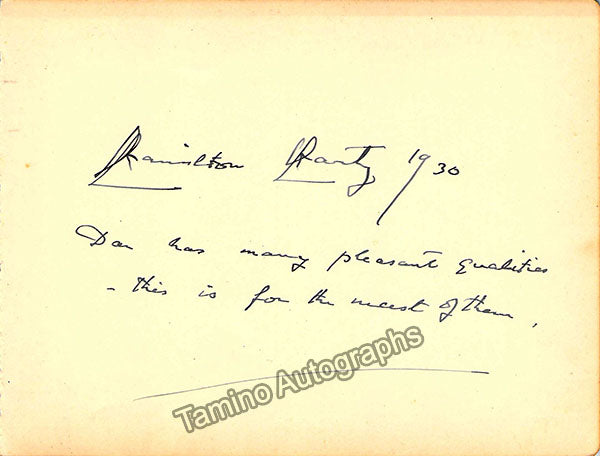 Hamilton Harty 1930
Dan has many pleasant qualities
- this is for the nicest of them.
Tamino Autographs